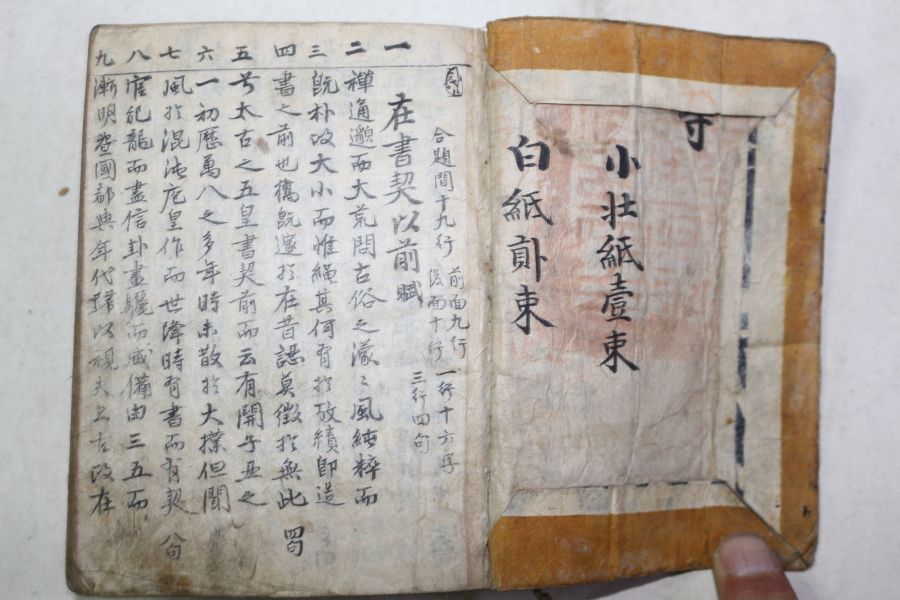 小壯紙壹束
白紙貳束
合題間十九行 前面九行 後面十行 一行十六字 三行四句
一 在書契以前賦
二 禪通邈而大荒問古俗之濛〻風純粹而
三 旣朴政大小而惟繩其何有於攷績卽造
四 書之前也 旣邃於在昔 莫徵於無此 四句
五 太古之五皇書契前而云有開子 之
六 一初歷萬八之多年時未散於大樸但聞
七 風於混沌庖皇作而世降時有書而有契 八句
八 官紀龍而盡信卦畫 而咸備由三五而
九 漸明 國都與年代 以視夫上古政在